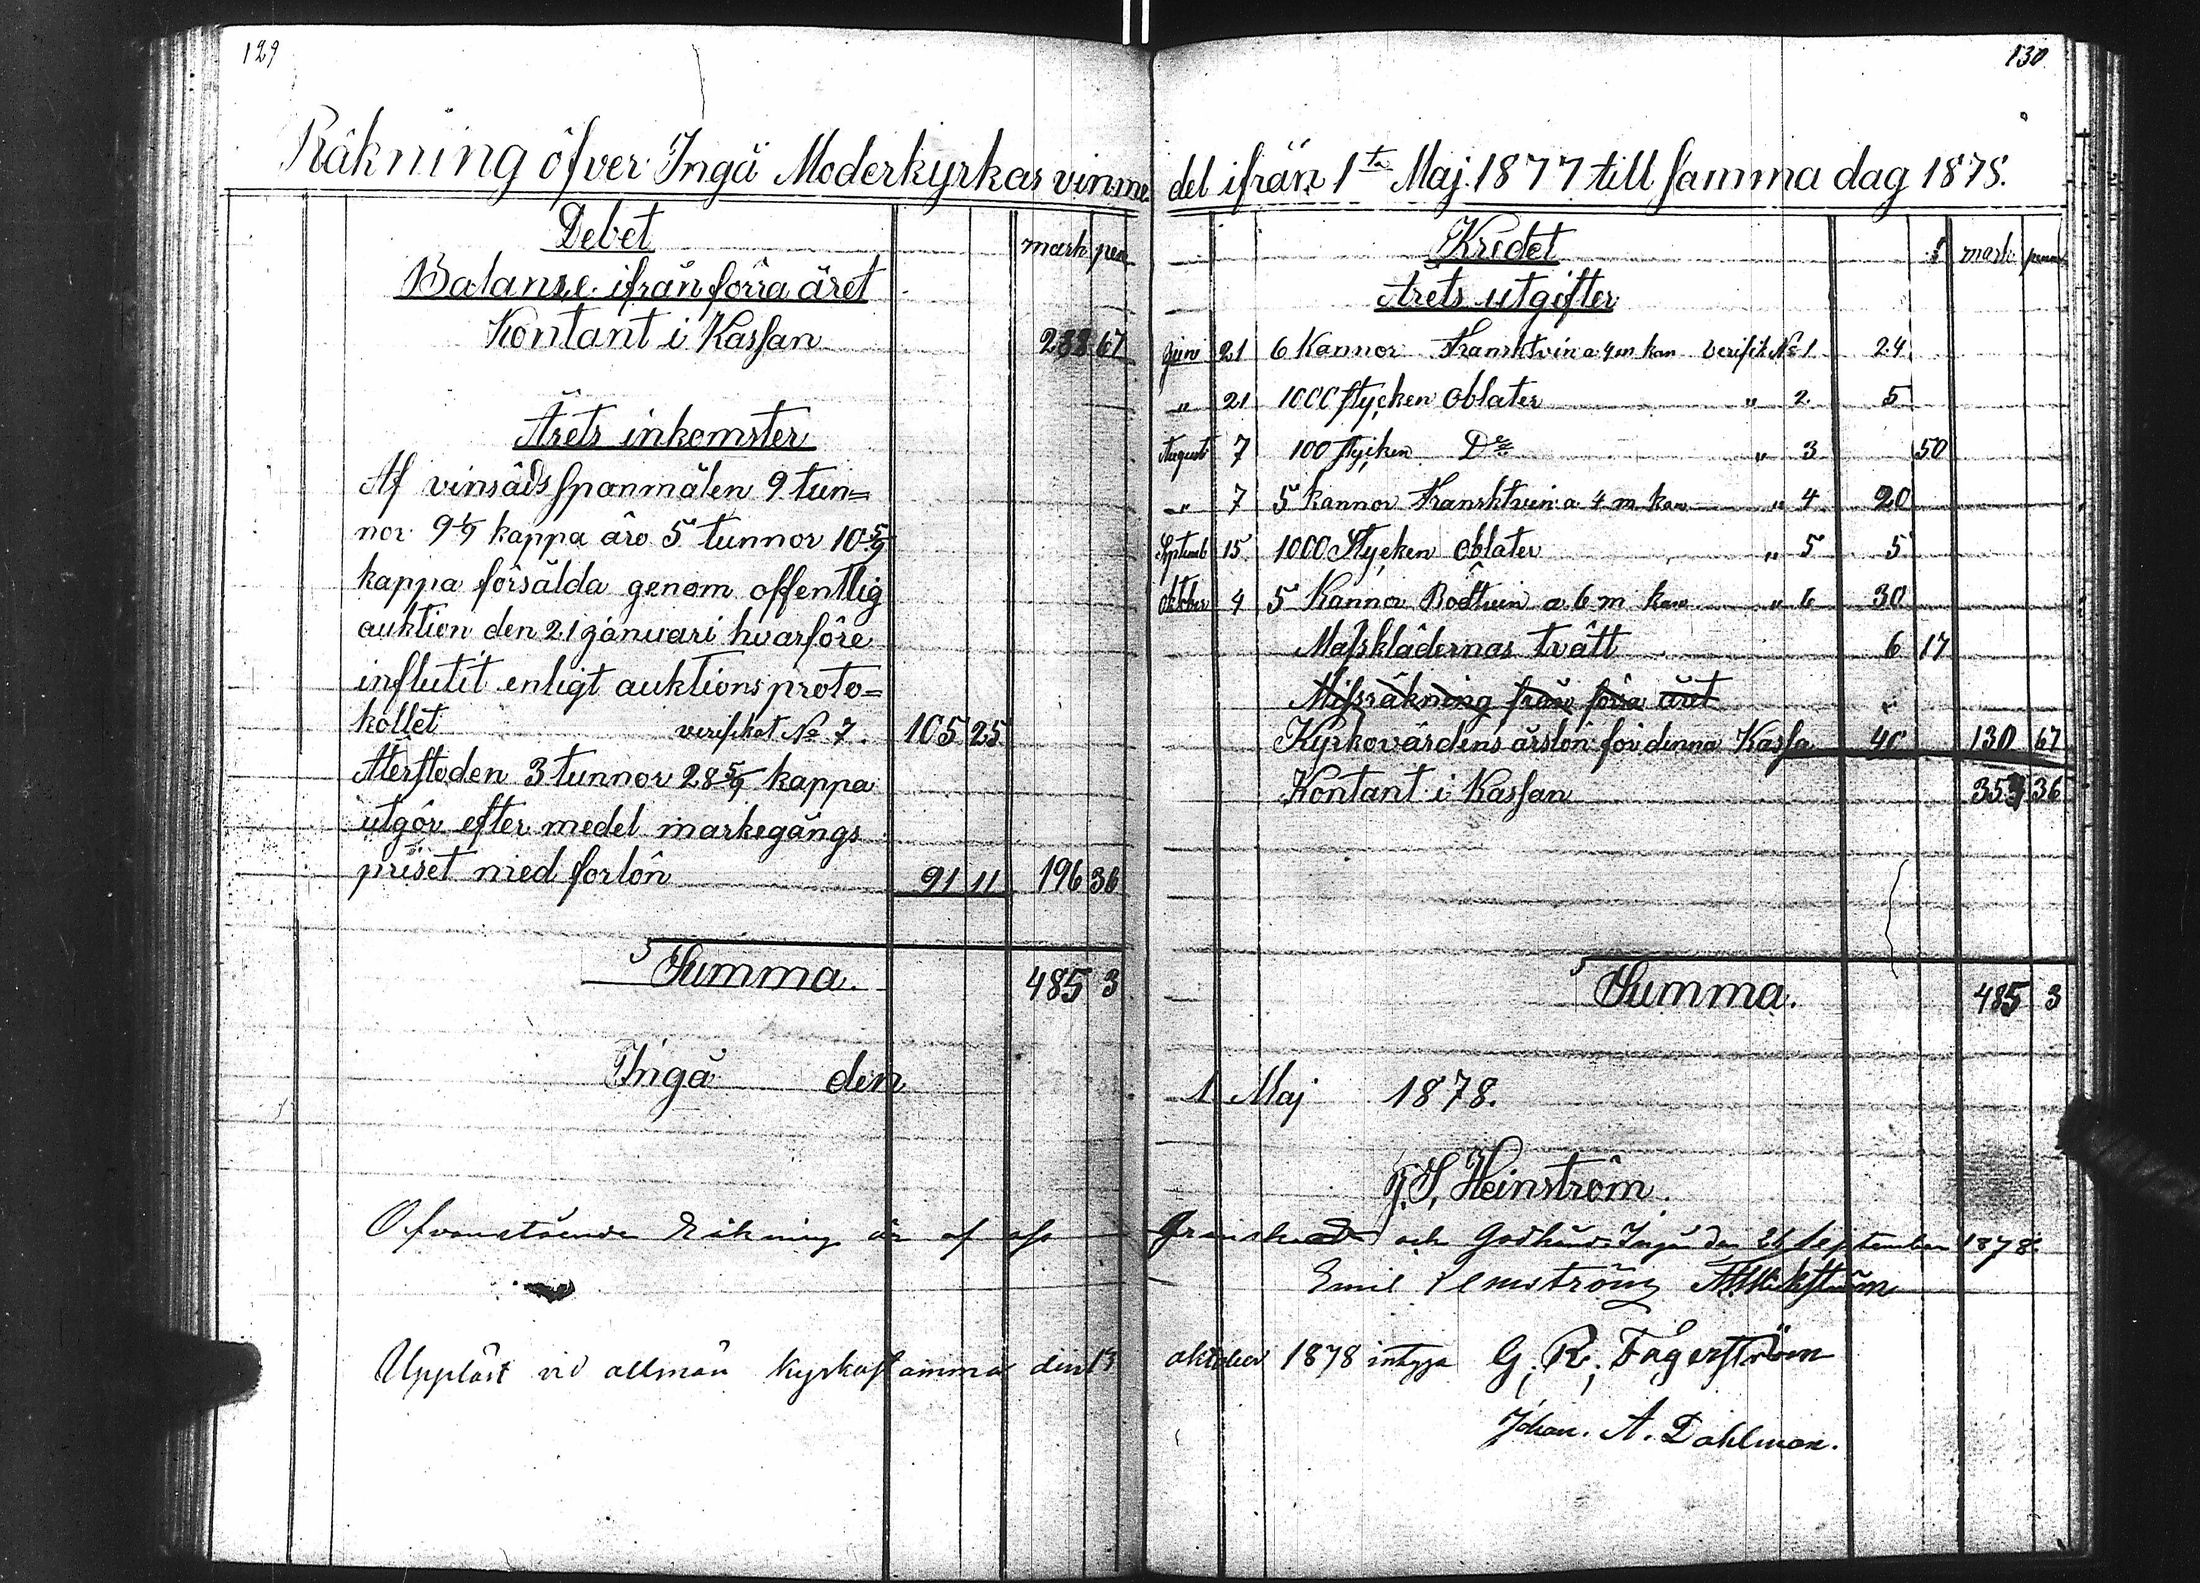 129
Räkning öfver Ingå Moderkyrkas vinme
Debet
mark pen
Balanse ifrån förra året
Kontant i Kassan 288 67
Årets inkomster
Af vinsäds spanmålen 9 tun=
nor 9 1/9 kappa äro 5 tunnor 10 5/9
kappa försålda genom offentlig
auktion den 21 januari hvarföre
influtit enligt auktions proto=
kollet verifikat No 7. 105 25
Återstoden 3 tunnor 28 5/9 kappa
utgör efter medel markegångs
priset med forlön 91 11 196 36
Summa. 485 3
Ingå den
Ofvanstående Räkning är af oss
Uppläst vid allmän kyrkostämma den 13
130
del ifrån 1ta Maj 1877 till samma dag 1878.
Kredet
mark
Årets utgifter
Jun 21 6 Kannor Fransktvin a 4 m kan Verifik No 1 24
" 21 1000 stycken oblater " 2. 5
Augusti 7 100 stycken Do " 3 50
" 7 5 kannor Fransktvin a 4 m kan " 4 20
Septemb 15 1000 Stycken oblater " 5 5
Oktober 4 5 Kannor Rödtvin a 6 m kan " 6 30
Mässklädernas tvätt 6 17
Missräkning från förra året
Kyrkovärdens årslön för denna Kassa 40 130 67
Kontant i Kassan 354 36
Summa. 485 3
1 Maj 1878.
Heinström.
Granskad och Godkänd. Ingå den 21 September 1878.
Emil
oktober 1878 intyga G. R. Fågerström
Johan. A. Dahlman.